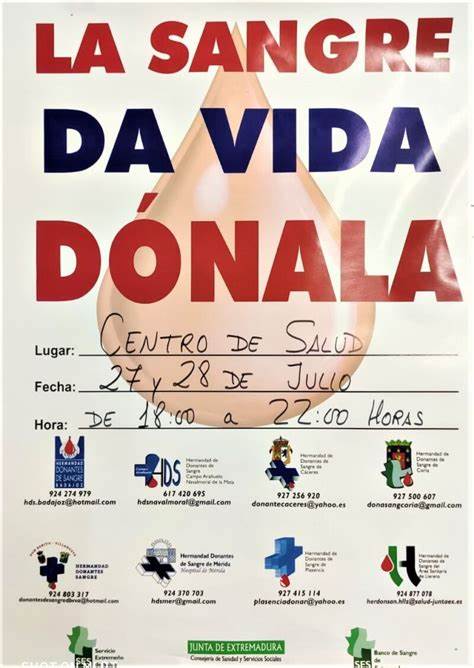 LA SANGRE
DA VIDA
DÓNALA
Lugar: CENTRO DE SALUD
Fecha: 27 y 28 DE JULIO
Hora: DE 18:00 a 22:00 HORAS
HERMANDAD
DONANTES
DE SANGRE
BADAJOZ
924 274 979
hds.badajoz@hotmail.com
HDS
Hermandad de
Donantes de
Sangre
Campo Arañuelo
Navalmoral de la Mata
617 420 695
hdsnavalmoral@gmail.com
Hermandad de
Donantes de
Sangre de
Cáceres
927 256 920
donantecaceres@yahoo.es
Hermandad de
Donantes de
Sangre de
Coria
927 500 607
donasangcoria@gmail.com
HERMANDAD
DONANTES
SANGRE
924 803 317
donantesdesangredbvva@hotmail.com
Hermandad Donantes
de Sangre de Mérida
Hospital de Mérida
924 370 703
hdsmer@gmail.com
Hermandad
Donantes de
Sangre de
Plasencia
927 415 114
plasenciadonar@yahoo.es
Hermandad
Donantes de
Sangre del
Área Sanitaria
de Llerena
924 877 078
herdonsan.hlls@salud-juntaex.es
SES
Servicio
Extremeño
JUNTA DE EXTREMADURA
Consejería de Sanidad y Servicios Sociales
SES
Banco de
Sangre de